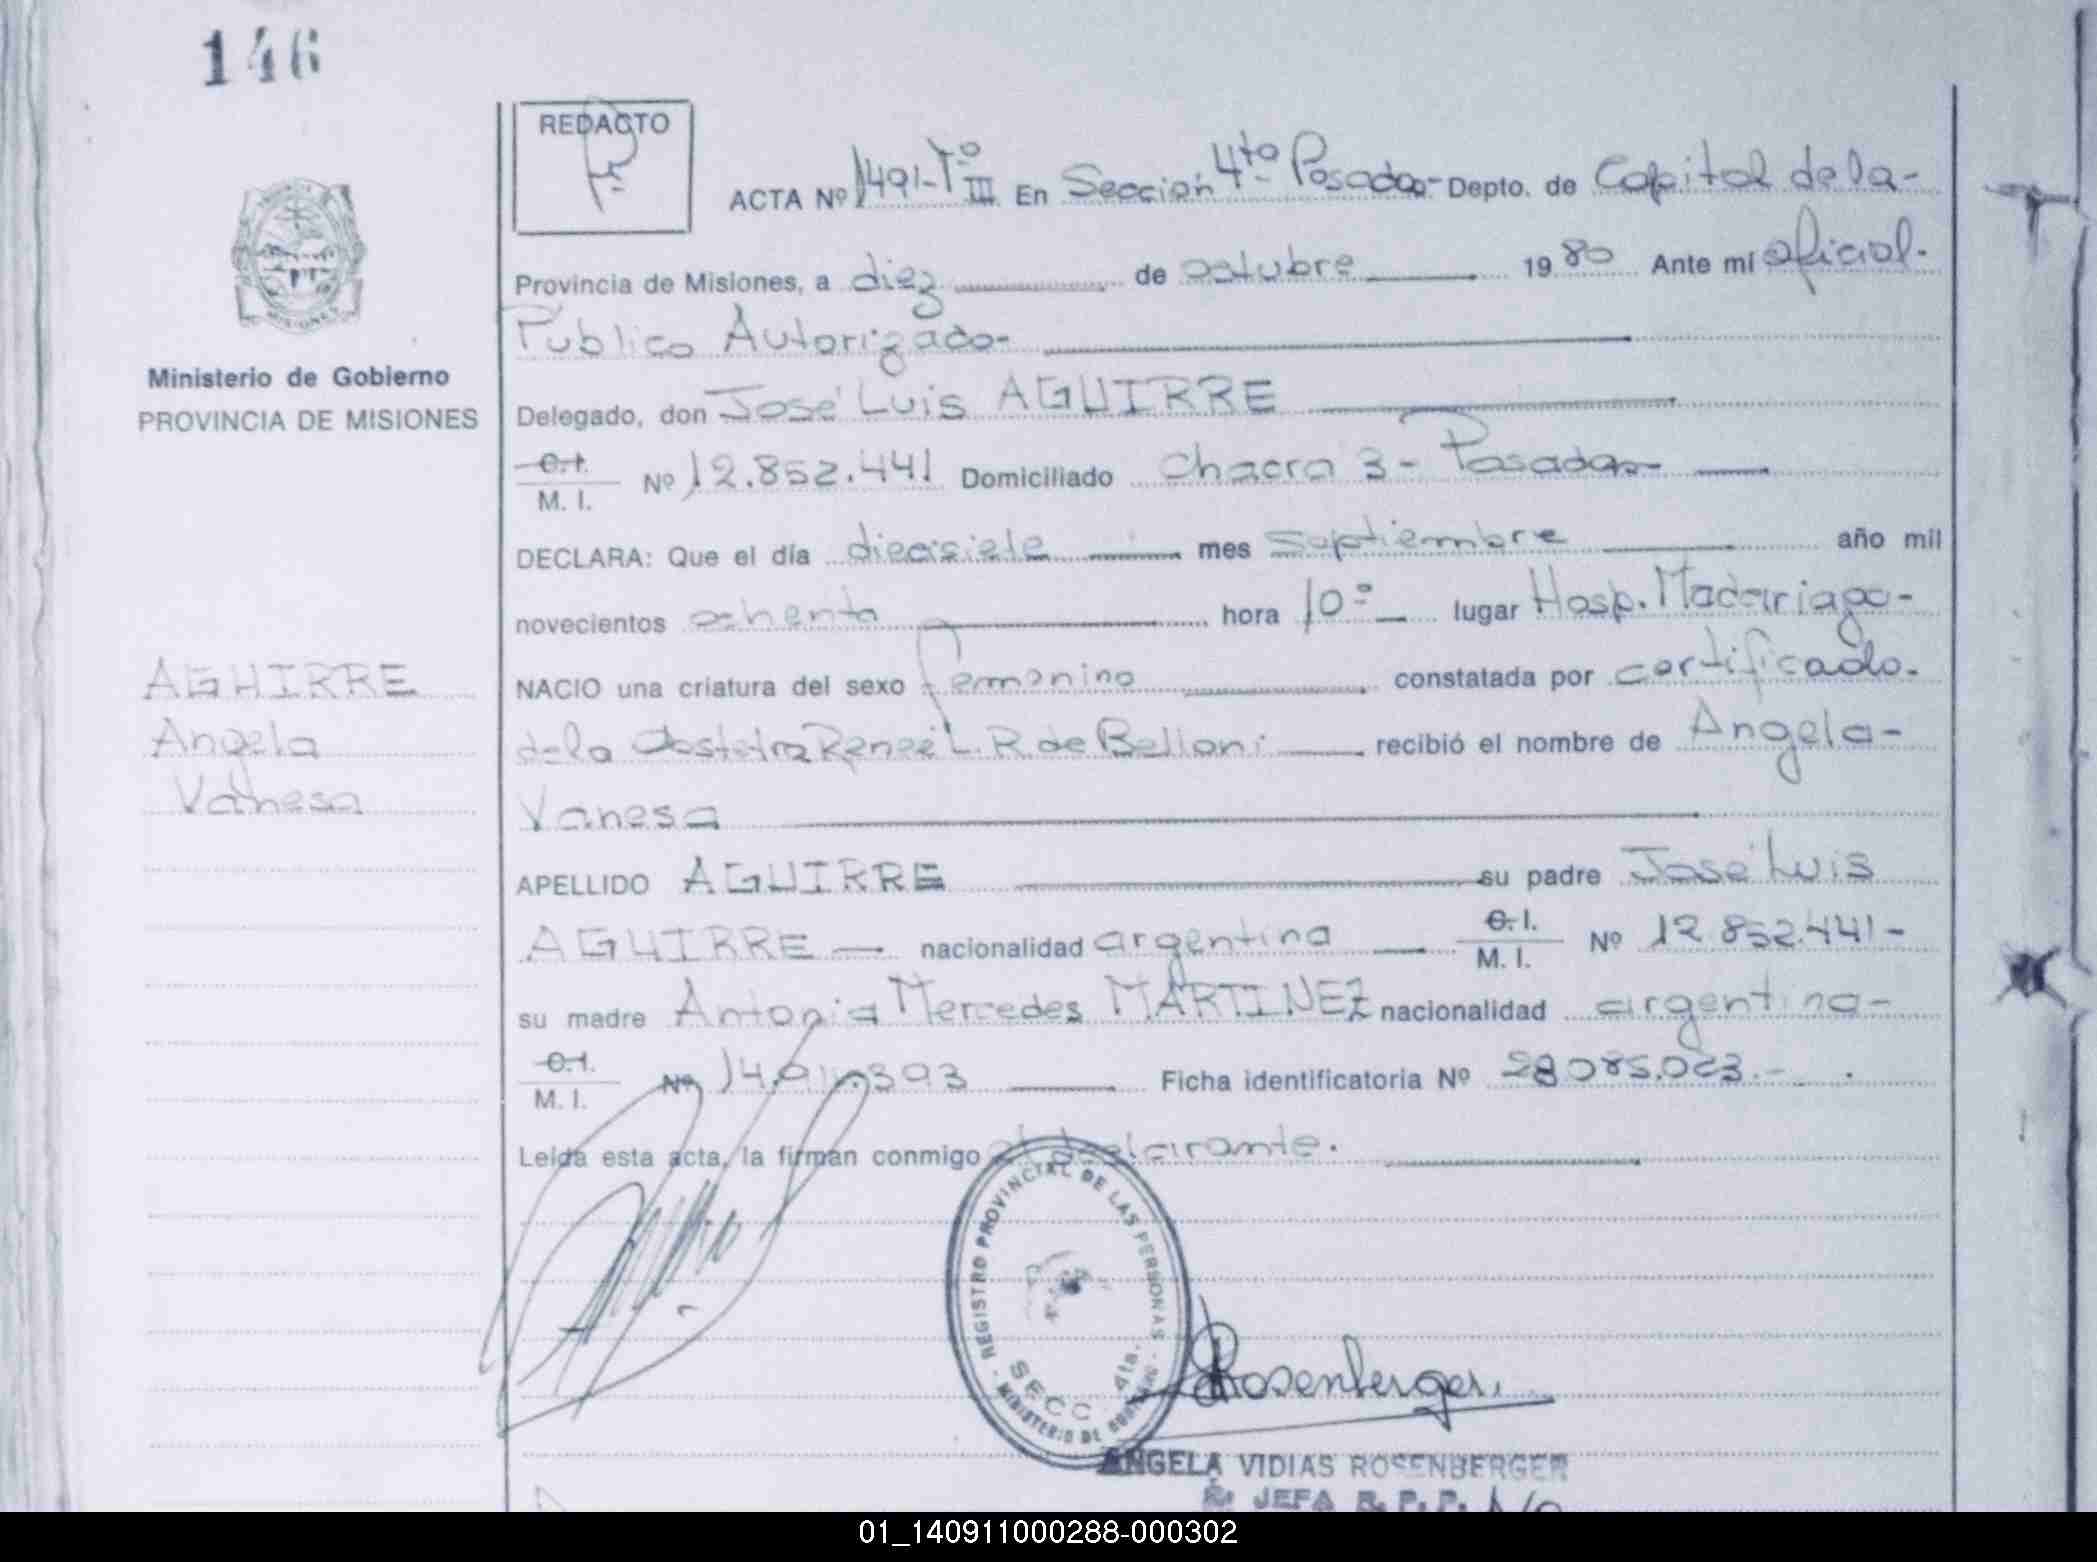 146
REDACTO
ACTA Nº 1491-Tº III En Sección 4ta Posadas- Depto. de Capital de la-
Provincia de Misiones, a diez de octubre 1980 Ante mí oficial-
Publico Autorizado-
Ministerio de Gobierno
PROVINCIA DE MISIONES
Delegado, don José Luis AGUIRRE
C.I.
M. I. Nº 12.852.441 Domiciliado Chacra 3- Posadas-
DECLARA: Que el día diecisiete mes septiembre año mil
novecientos ochenta hora 10º lugar Hosp. Madariaga-
AGUIRRE
Angela
Vanesa
NACIO una criatura del sexo femenino constatada por certificado-
de la Obstetra Reneé L. R. de Belloni recibió el nombre de Angela-
Vanesa
APELLIDO AGUIRRE su padre José Luis
AGUIRRE nacionalidad argentina C.I.
M. I. Nº 12.852.441-
su madre Antonia Mercedes MARTINEZ nacionalidad argentina-
C.I.
M. I. Nº Ficha identificatoria Nº 28085.023.-
Leída esta acta, la firman conmigo el declarante.
- REGISTRO PROVINCIAL DE LAS PERSONAS -
SECC. 4ta.
MINISTERIO DE GOBIERNO
Rosenberger
ANGELA VIDIAS ROSENBERGER
JEFA R. P. P.
01_140911000288-000302